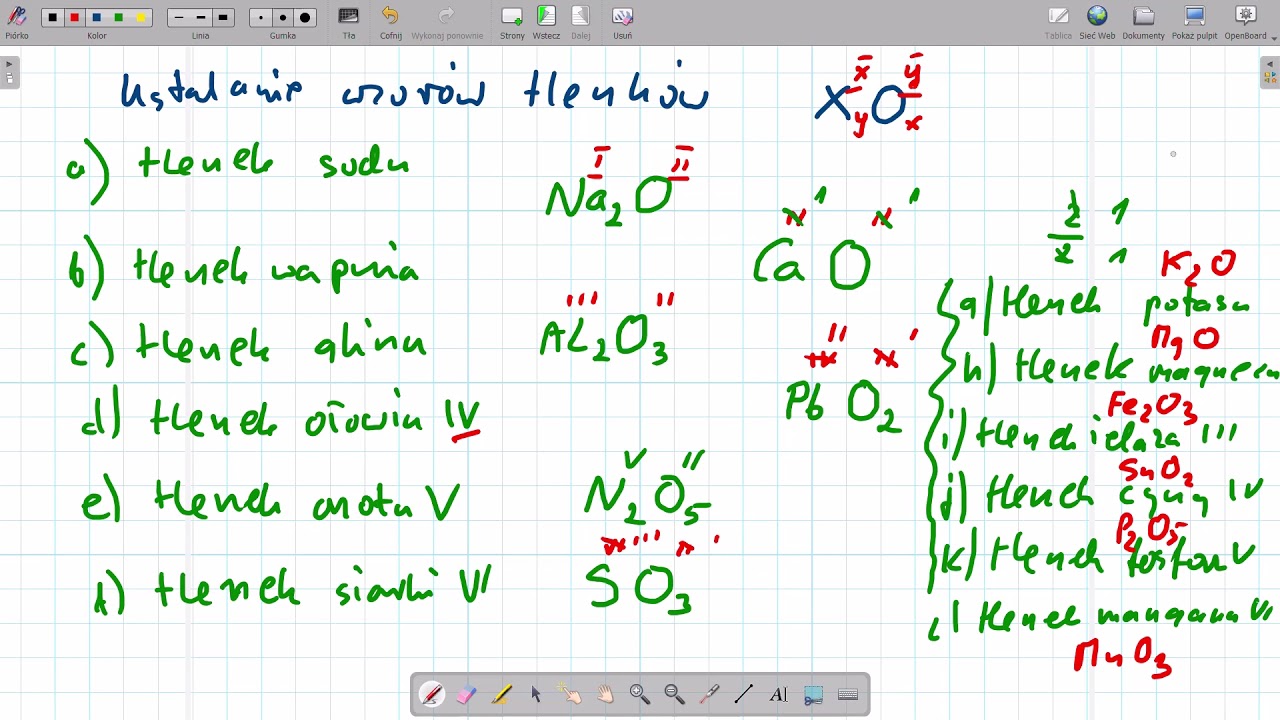 Piórko Kolor Linia Gumka Tła Cofnij Wykonaj ponownie Strony Wstecz Dalej Usuń Tablica Sieć Web Dokumenty Pokaż pulpit OpenBoard
Ustalanie wzorów tlenków
x y
X O
y x
a) tlenek sodu
I II
Na2O
b) tlenek wapnia
1 1
Ca O
2 1
2 1
c) tlenek glinu
III II
AL2O3
d) tlenek ołowiu IV
II I
Pb O2
e) tlenek azotu V
V II
N2O5
f) tlenek siarki VI
III I
S O3
K2O
g) tlenek potasu
MgO
h) tlenek magnezu
Fe2O3
i) tlenek żelaza III
SnO2
j) tlenek cyny IV
P2O5
k) tlenek fosforu V
l) tlenek manganu VI
MnO3
AI